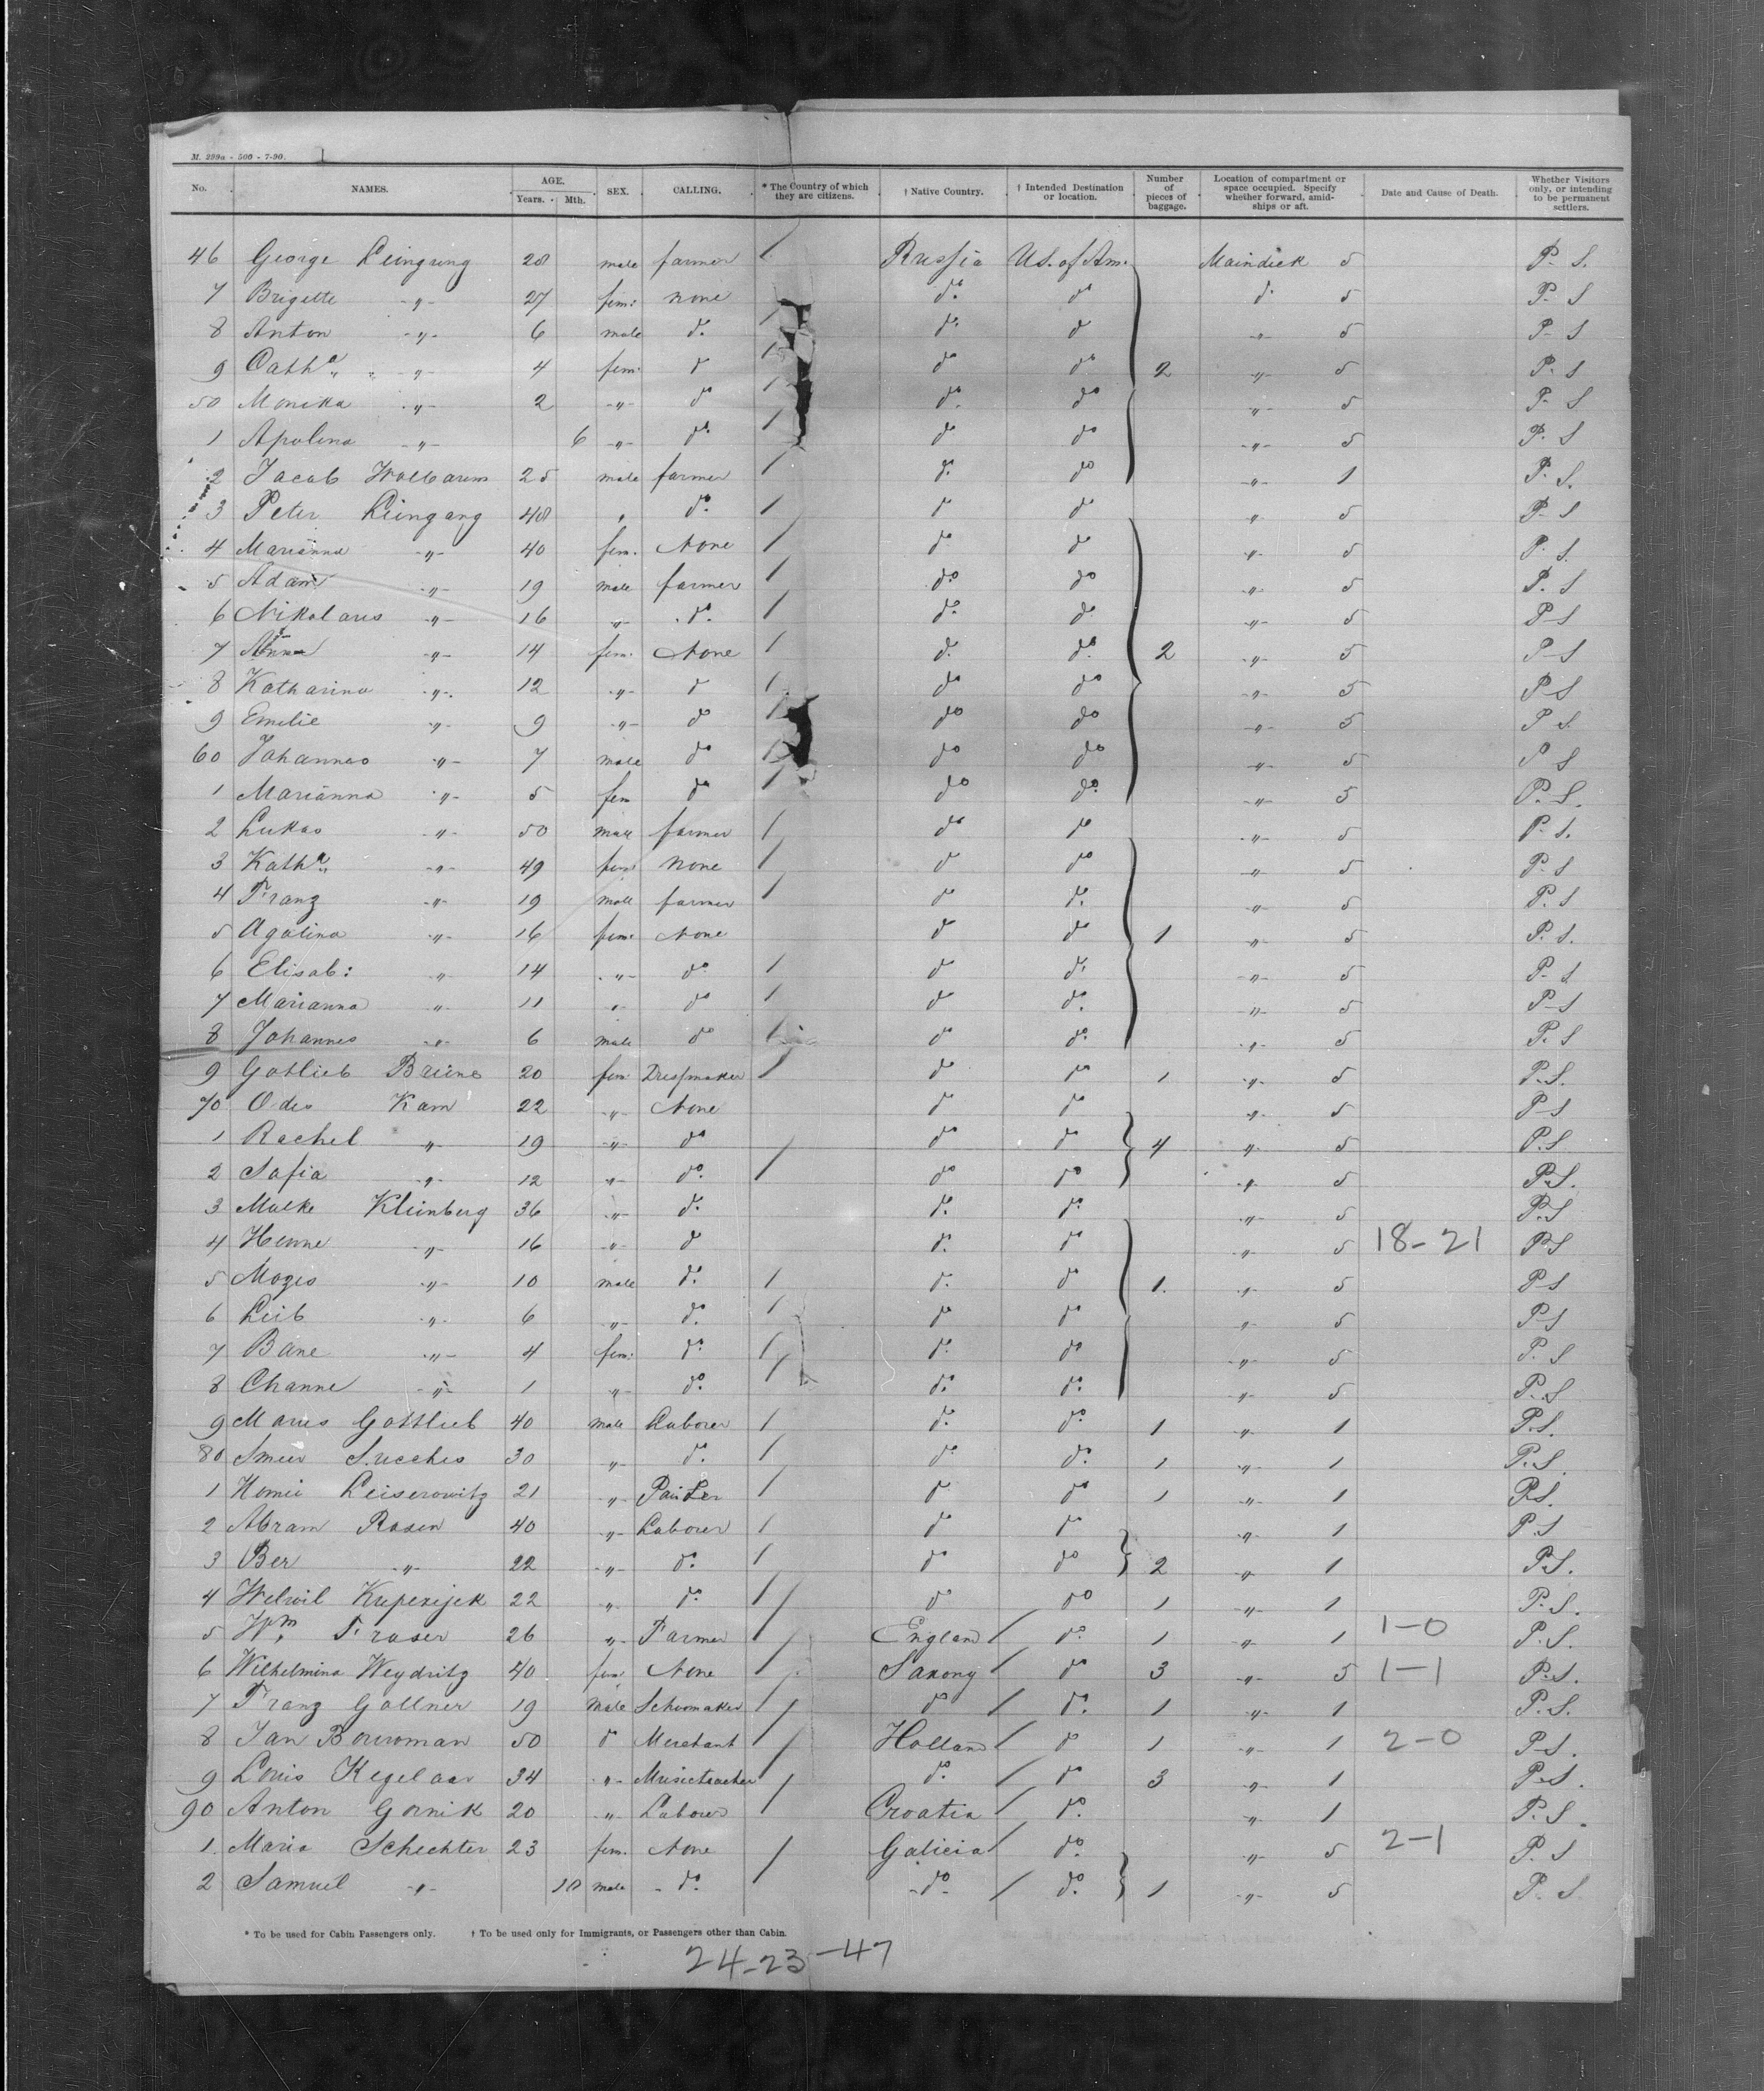 M. 299a - 500 - 7-90.
No. NAMES. AGE. Years. Mth. SEX. CALLING. * The Country of which they are citizens. † Native Country. † Intended Destination or location. Number of pieces of baggage. Location of compartment or space occupied. Specify whether forward, amidships or aft. Date and Cause of Death. Whether Visitors only, or intending to be permanent settlers.
46 George Leingrung 28 male farmer / Russia U.S. of Am. Maindeck 5 P. S.
7 Brigette -"- 27 fem: none do. do d. 5 P. S
8 Anton -"- 6 male d. / do. d -"- 5 P. S
9 Catha " -"- 4 fem: d / do do 2 -"- 5 P. S
50 Monika -"- 2 -"- do / do. do -"- 5 P. S
1 Apolina -"- 6 -"- do. / do do -"- 5 P. S
2 Jacob 25 male farmer / do. do -"- 1 P. S.
3 Peter Leingang 48 " do. / do do -"- 5 P. S
4 Marianna -"- 40 fem. None / do do -"- 5 P. S.
5 Adam -"- 19 male farmer / do do -"- 5 P. S
6 Nikolaus -"- 16 -"- do. / do. do. -"- 5 P S
7 Anna -"- 14 fem. None / d. do. 2 -"- 5 P S
8 Katharina -"- 12 -"- d / do do -"- 5 P S
9 Emilie -"- 9 -"- do / do do -"- 5 P S.
60 Johannes -"- 7 male do / do do -"- 5 P S
1 Marianna -"- 5 fem do / do do. -"- 5 P. S.
2 Lukas -"- 50 male farmer / do do -"- 5 P. S.
3 Katha -"- 49 fem none / do do -"- 5 P. S
4 Franz -"- 19 male farmer / do do. -"- 5 P. S
5 Agatina -"- 16 fem: None do do 1 -"- 5 P. S.
6 Elisab: -"- 14 -"- do / do do. -"- 5 P. S
7 Marianna -"- 11 -"- do / do do. -"- 5 P S
8 Johannes -"- 6 male do / do do. -"- 5 P. S
9 Gotlieb Breine 20 fem Dressmaker / do do 1 -"- 5 P. S.
70 Odes Kam 22 -"- None do do -"- 5 P S
1 Rachel -"- 19 -"- do do do 4 -"- 5 P. S
2 Safia -"- 12 -"- do. / do do -"- 5 P. S.
3 Malke Kleinberg 36 -"- d. do. do. -"- 5 P. S
4 Henne -"- 16 -"- d d. do -"- 5 18-21 P S
5 Mozes -"- 10 male d. / d. do 1. -"- 5 P S
6 Leib -"- 6 -"- do. / do do -"- 5 P S
7 Bane -"- 4 fem: do. / do. do -"- 5 P. S
8 Channe -"- 1 -"- do. / do. do. -"- 5 P. S
9 Mares Gottlieb 40 male Laborer / do. do. 1 -"- 1 P. S.
80 30 -"- do. / do do. 1 -"- 1 P. S.
1 Leiserowitz 21 -"- Painter / do do 1 -"- 1 P. S.
2 Abram Rosen 40 -"- Laborer / do do -"- 1 P. S
3 Ber -"- 22 -"- do. / do do 2 -"- 1 P. S.
4 Welwil 22 -"- do. / do do 1 -"- 1 P. S.
5 Wm. Fraser 26 -"- Farmer / England / do. 1 -"- 1 1-0 P. S.
6 Wilhelmina Weydritz 40 fem None / Saxony / do 3 -"- 5 1-1 P. S.
7 Franz Gollner 19 male Schoomaker / do / do. 1 -"- 1 P. S.
8 Jan Bouwman 50 d Merchant / Holland / do 1 -"- 1 2-0 P. S.
9 Louis Kegelaar 34 -"- Musicteacher / do. / do 3 -"- 1 P. S.
90 Anton Gornik 20 -"- Laborer / Croatia / do. -"- 1 P. S.
1. Maria Schechter 23 fem. None / Galicia / do. -"- 5 2-1 P. S
2 Samuel -"- 10 male - do. / -do- / do. 1 -"- 5 P. S.
* To be used for Cabin Passengers only. † To be used only for Immigrants, or Passengers other than Cabin.
24-23-47